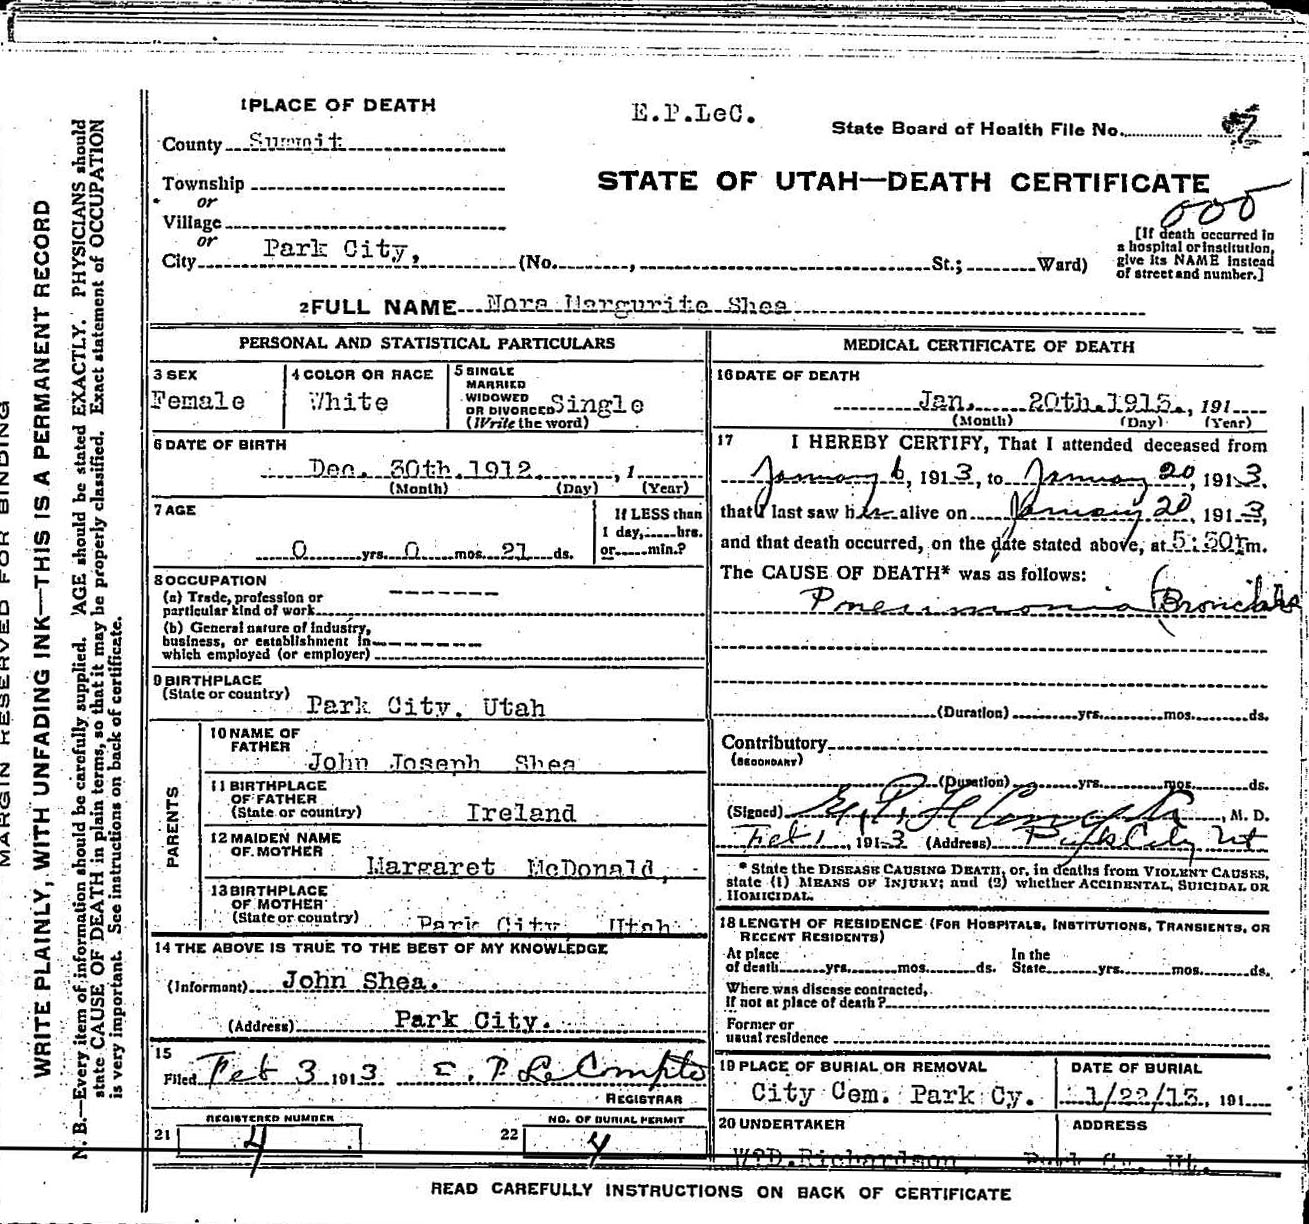 MARGIN RESERVED FOR BINDING
WRITE PLAINLY, WITH UNFADING INK—THIS IS A PERMANENT RECORD
N. B.—Every item of information should be carefully supplied. AGE should be stated EXACTLY. PHYSICIANS should
state CAUSE OF DEATH in plain terms, so that it may be properly classified. Exact statement of OCCUPATION
is very important. See instructions on back of certificate.
1 PLACE OF DEATH
E.P.LeC.
State Board of Health File No. 7
County Summit
Township
or
Village
or
City Park City, (No. , St.; Ward)
STATE OF UTAH—DEATH CERTIFICATE
000
[If death occurred in
a hospital or institution,
give its NAME instead
of street and number.]
2 FULL NAME Nora Margurite Shea
PERSONAL AND STATISTICAL PARTICULARS
3 SEX
Female
4 COLOR OR RACE
White
5 SINGLE
MARRIED
WIDOWED
OR DIVORCED Single
(Write the word)
6 DATE OF BIRTH
Dec. 30th.1912. , 1
(Month) (Day) (Year)
7 AGE
0 yrs. 0 mos. 21 ds.
If LESS than
1 day, hrs.
or min.?
8 OCCUPATION
(a) Trade, profession or
particular kind of work
(b) General nature of industry,
business, or establishment in
which employed (or employer)
9 BIRTHPLACE
(State or country) Park City. Utah
PARENTS
10 NAME OF
FATHER
John Joseph Shea
11 BIRTHPLACE
OF FATHER
(State or country) Ireland
12 MAIDEN NAME
OF MOTHER
Margaret McDonald,
13 BIRTHPLACE
OF MOTHER
(State or country) Park City, Utah
14 THE ABOVE IS TRUE TO THE BEST OF MY KNOWLEDGE
(Informant) John Shea.
(Address) Park City.
15
Filed Feb 3 1913 E. P. Le Compte
REGISTRAR
REGISTERED NUMBER
21 4
NO. OF BURIAL PERMIT
22 4
MEDICAL CERTIFICATE OF DEATH
16 DATE OF DEATH
Jan. 20th.1913. , 191
(Month) (Day) (Year)
17 I HEREBY CERTIFY, That I attended deceased from
January 6, 1913, to January 20, 1913,
that I last saw her alive on January 20, 1913,
and that death occurred, on the date stated above, at 5:30 m.
The CAUSE OF DEATH* was as follows:
Pneumonia
(Duration) yrs. mos. ds.
Contributory
(SECONDARY)
(Duration) yrs. mos. ds.
(Signed) E. P. Le Compte, M. D.
Feb 1, 1913 (Address) Park City Ut
* State the DISEASE CAUSING DEATH, or, in deaths from VIOLENT CAUSES,
state (1) MEANS OF INJURY; and (2) whether ACCIDENTAL, SUICIDAL OR
HOMICIDAL.
18 LENGTH OF RESIDENCE (FOR HOSPITALS, INSTITUTIONS, TRANSIENTS, OR
RECENT RESIDENTS)
At place In the
of death yrs. mos. ds. State yrs. mos. ds.
Where was disease contracted,
If not at place of death?
Former or
usual residence
19 PLACE OF BURIAL OR REMOVAL
City Cem. Park Cy.
DATE OF BURIAL
1/22/13. , 191
20 UNDERTAKER
W?D.Richardson,
ADDRESS
Park Cy. Ut.
READ CAREFULLY INSTRUCTIONS ON BACK OF CERTIFICATE